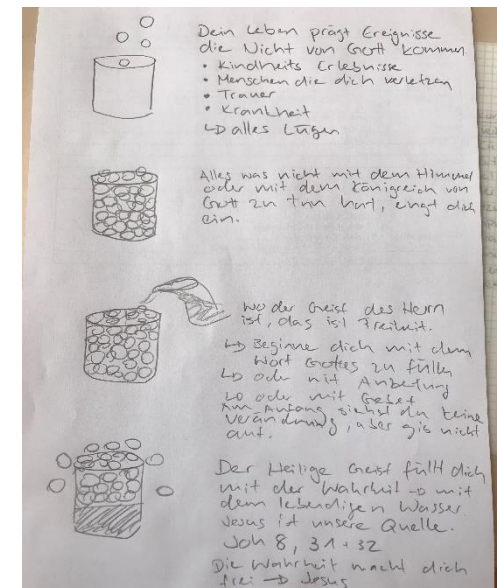 Dein Leben prägt Ereignisse
die Nicht von Gott kommen
• Kindheits Erlebnisse
• Menschen die dich verletzen
• Trauer
• Krankheit
↳ alles Lügen
Alles was nicht mit dem Himmel
oder mit dem Königreich von
Gott zu tun hat, engt dich
ein.
Wo der Geist des Herrn
ist, das ist Freiheit.
↳ Beginne dich mit dem
Wort Gottes zu füllen
↳ oder mit Anbetung
↳ oder mit Gebet
Am Anfang siehst du keine
Veränderung, aber gib nicht
auf.
Der Heilige Geist füllt dich
mit der Wahrheit → mit
dem lebendigen Wasser
Jesus ist unsere Quelle.
Joh 8, 31+32
Die Wahrheit macht dich
frei → Jesus